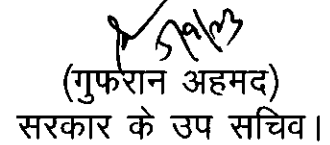 5/9/23
(गुफरान अहमद)
सरकार के उप सचिव।